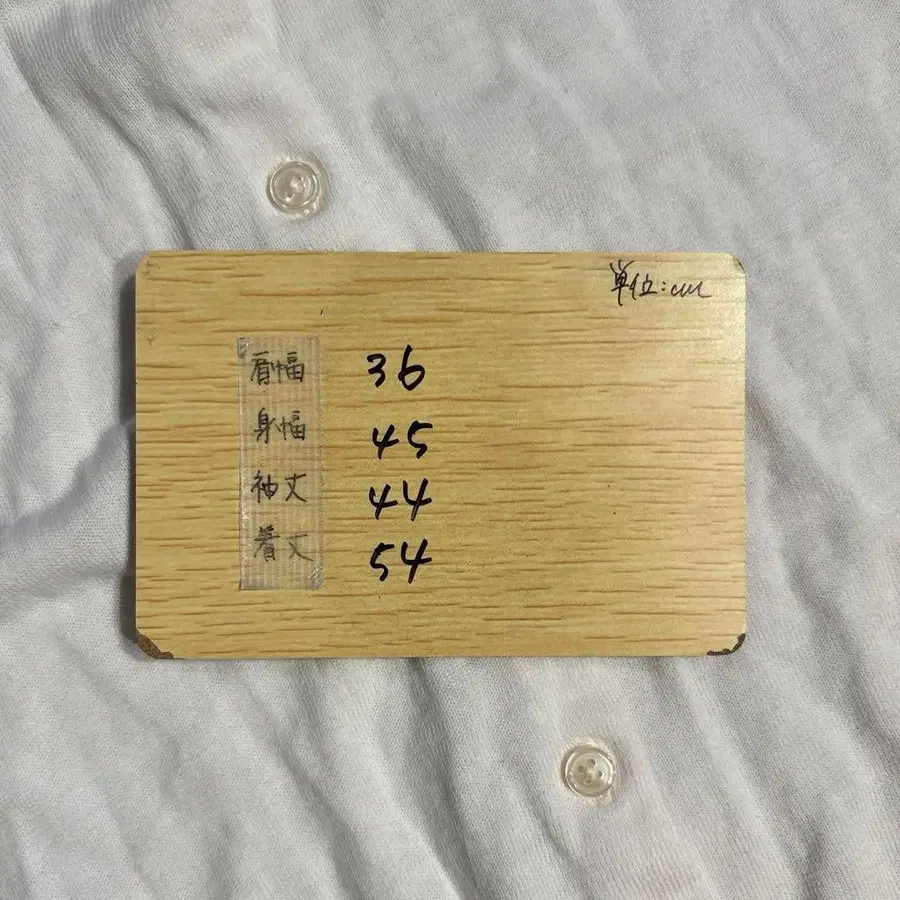 単位:cm
肩幅 36
身幅 45
袖丈 44
着丈 54